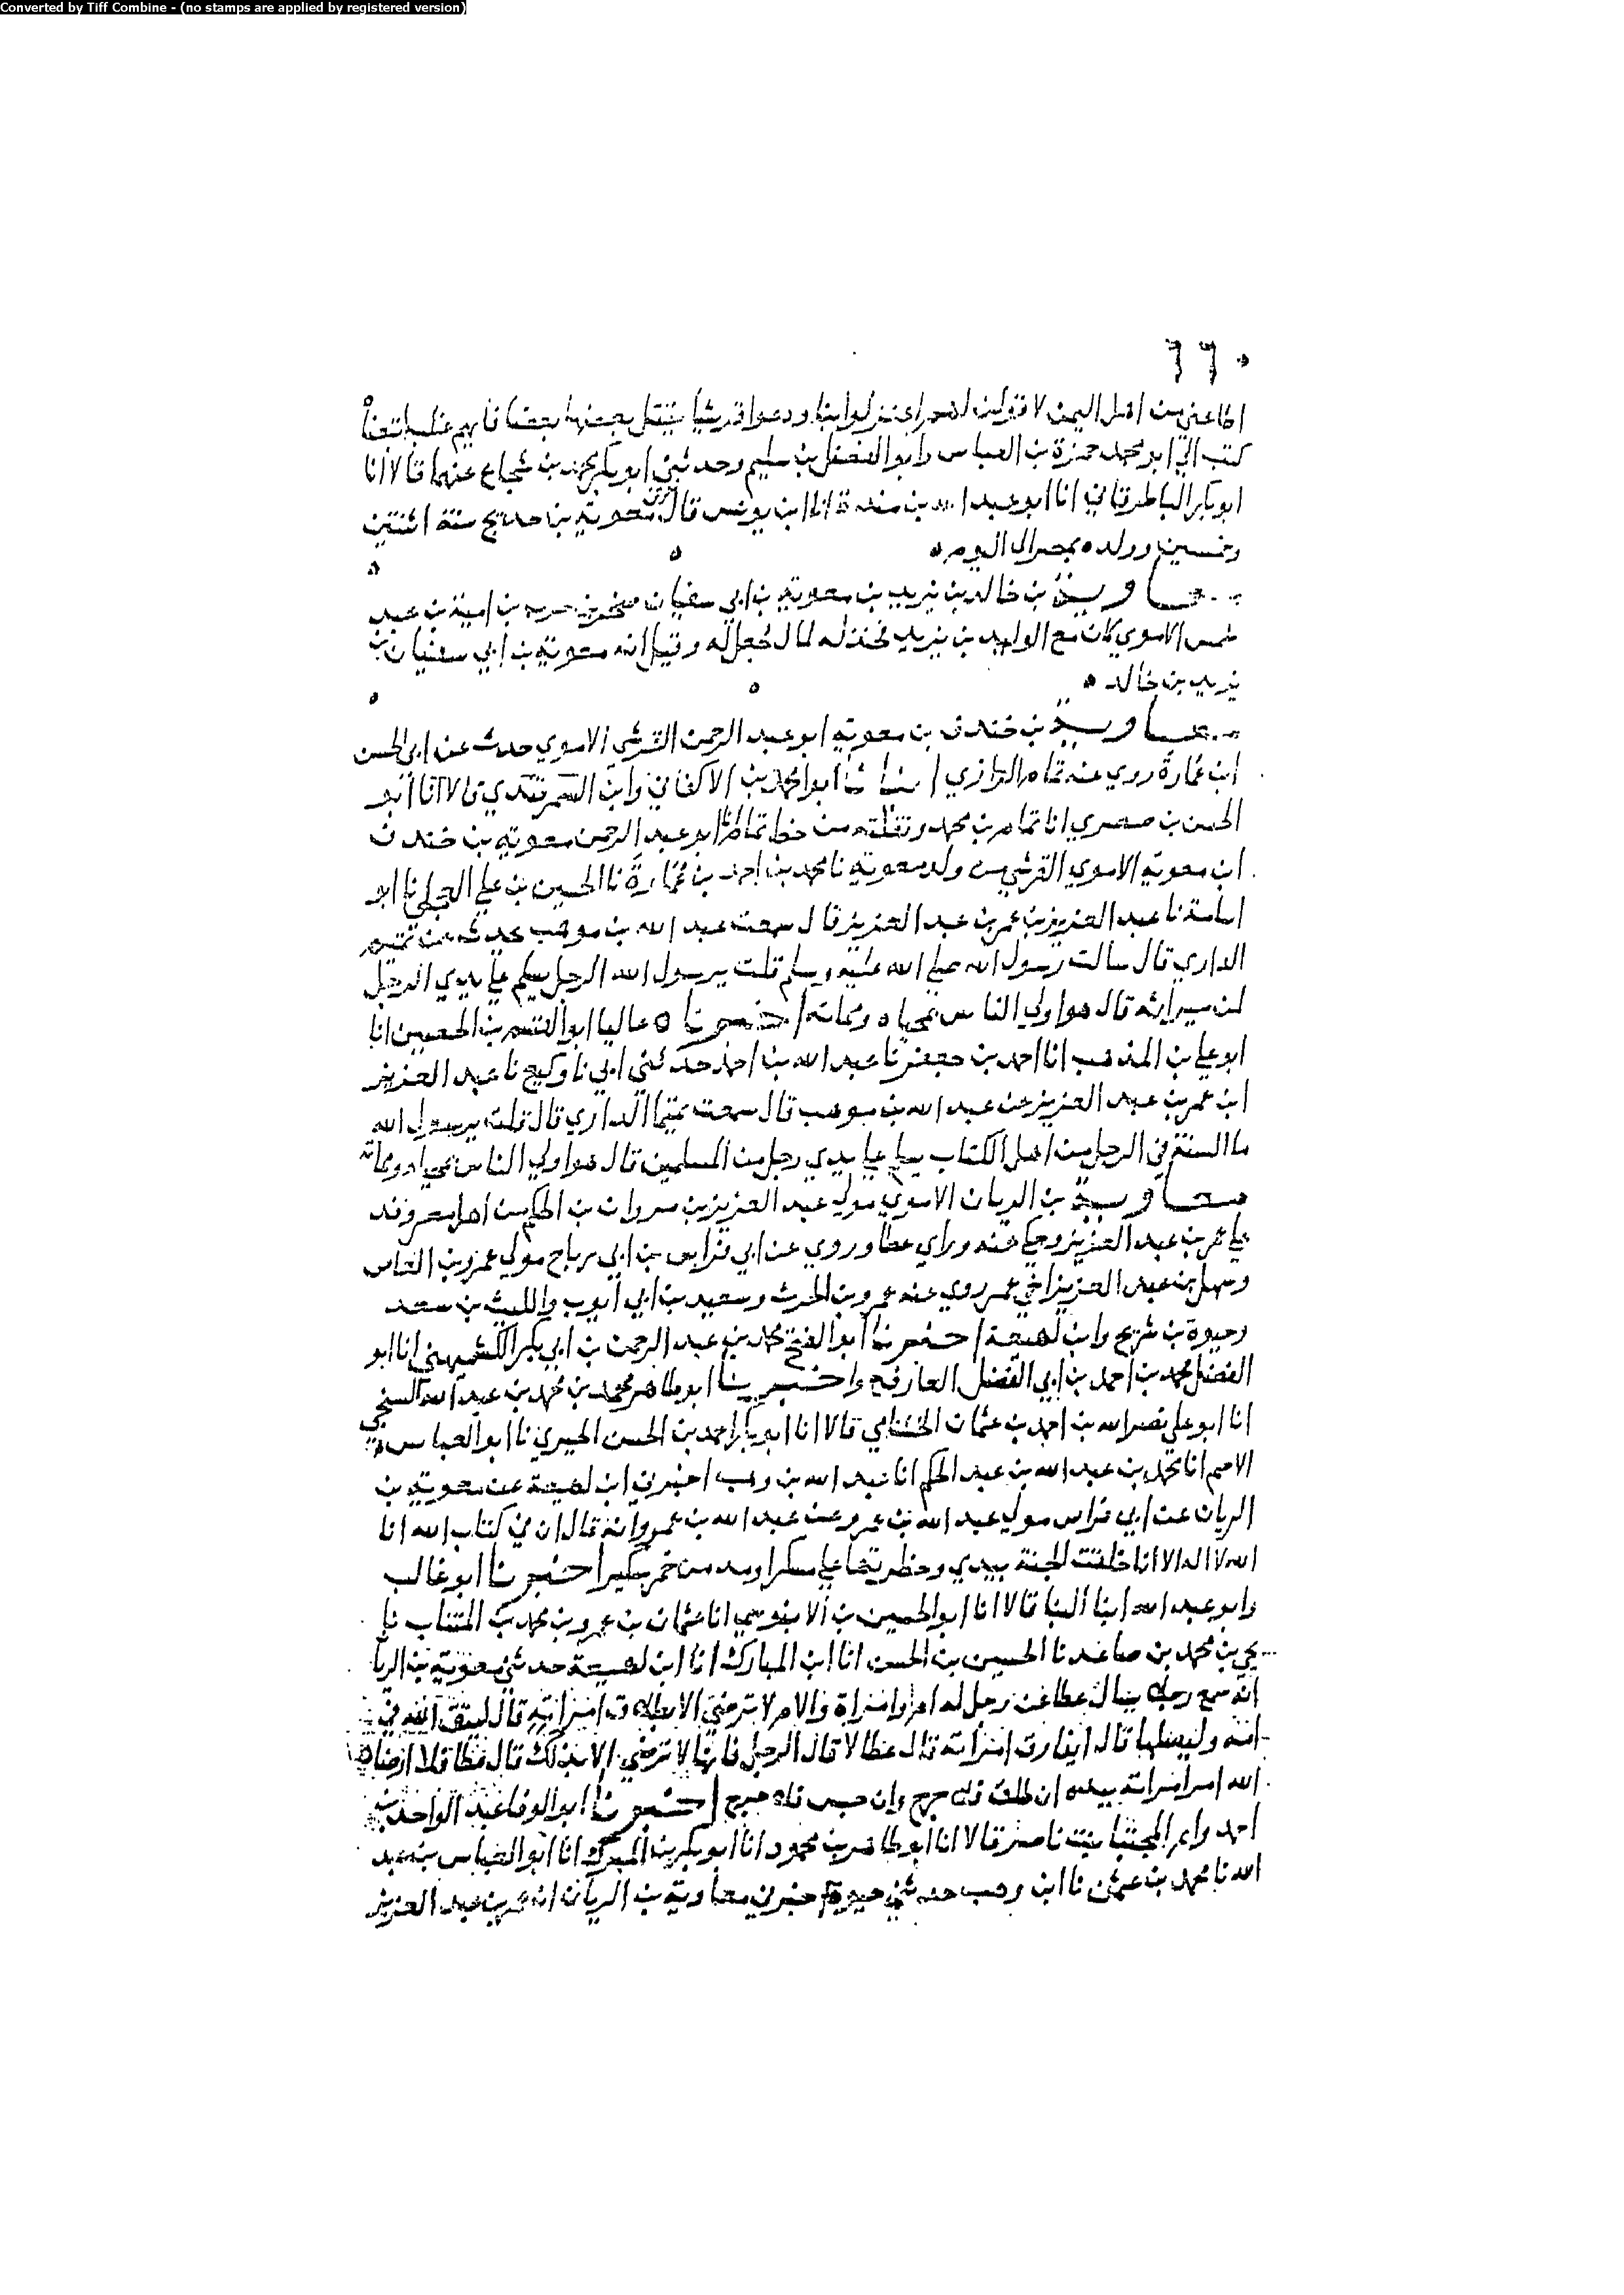 Converted by Tiff Combine - (no stamps are applied by registered version)
٦٦٠
اقاعني من اهل اليمن لا تولين لهم اعتزلوا بنا ودعوا قريشا يقتل بعضها بعضا فايهم غلب اتبعناه
كتب الي ابو محمد حمزة بن العباس وابو الفضل بن سليم وحدثني ابو بكر محمد بن شجاع عنهما قالا انا
ابو بكر الباطرقاني انا ابو عبد الله بن مندة انا ابن يونس قال توفي معوية بن حديج سنة اثنتين
وخمسين وولده بمصر الى اليوم ه
معاوية بن خالد بن يزيد بن معوية بن ابي سفيان صخر بن حرب بن امية بن عبد
شمس الاموي كان مع الوليد بن يزيد فخذله لمال جعل له وقيل انه معوية بن ابي سفيان بن
يزيد بن خالد ه
معاوية بن خندف بن معوية ابو عبد الرحمن القرشي الاموي حدث عن ابي الحسن
ابن عمارة روي عنه تمام الرازي انبانا ابو محمد بن الاكفاني وابن السمرقندي قالا انا ابو
الحسن بن صصري انا تمام بن محمد ونقلته من خط تمام انا ابو عبد الرحمن معوية بن خندف
ابن معوية الاموي القرشي من ولد معوية نا محمد بن احمد بن عمارة نا الحسين بن علي العجلي نا ابو
اسامة نا عبد العزيز بن عمر بن عبد العزيز قال سمعت عبد الله بن موهب يحدث عن تميم
الداري قال سالت رسول الله صلي الله عليه وسلم قلت يرسول الله الرجل يسلم علي يدي الرجل
لمن ميراثه قال هو اولي الناس بمحياه ومماته اخبرناه عاليا ابو القسم بن الحصين انا
ابو علي بن المذهب انا احمد بن جعفر نا عبد الله بن احمد حدثني ابي نا وكيع نا عبد العزيز
ابن عمر بن عبد العزيز عن عبد الله بن موهب قال سمعت تميما الداري قال قلت يرسول الله
ما السنة في الرجل من اهل الكتاب يسلم علي يدي رجل من المسلمين قال هو اولي الناس بمحياه ومماته
معاوية بن الريان الاموي مولي عبد العزيز بن مروان بن الحكم من اهل مصر وفد
علي عمر بن عبد العزيز وحكي عنه وراي عطا وروي عن ابي فراس بن ابي رباح مولي عمرو بن العاص
وسهل بن عبد العزيز اخي عمر روي عنه عمرو بن الحرث وسعيد بن ابي ايوب والليث بن سعد
وحيوة بن شريح وابن لهيعة اخبرنا ابو الفتح محمد بن عبد الرحمن بن ابي بكر الكشميهني انا ابو
الفضل محمد بن احمد بن ابي الفضل العارف ح واخبرنا ابو طاهر محمد بن محمد بن عبد الله السنجي
انا ابو علي نصر الله بن احمد بن عثمان الخشنامي قالا انا ابو بكر احمد بن الحسن الحيري نا ابو العباس
الاصم انا محمد بن عبد الله بن عبد الحكم انا عبد الله بن وهب اخبرني ابن لهيعة عن معوية بن
الريان عن ابي فراس مولي عبد الله بن عمرو عن عبد الله بن عمرو انه قال ان في كتاب الله انا
الله لا اله الا انا خلقت الجنة بيدي وحظرتها علي مسكر او مدمن خمر سكير اخبرنا ابو غالب
وابو عبد الله ابنا البنا قالا انا ابو الحسين بن الابنوسي انا عثمان بن عمرو بن محمد بن المنتاب نا
يحيي بن محمد بن صاعد نا الحسين بن الحسن انا ابن المبارك انا ابن لهيعة حدثني معوية بن الريا
انه سمع رجلا يسال عطا عن رجل له ام وامراة والام لا ترضي الا بطلاق امراته قال ليتق الله في
امه وليصلها قال ايفارق امراته قال عطا لا قال الرجل فانها لا ترضي الا بذلك قال عطا فلا ارضاها
الله امر امراته بيده ان طلق فلا حرج وان حبس فلا حرج اخبرنا ابو الوفا عبد الواحد بن
احمد وام المجتبا بنت ناصر قالا انا ابو طاهر بن محمود انا ابو بكر بن المقرئ انا ابو العباس بن عبد
الله نا محمد بن عثمن نا ابن وهب حدثني حيوة اخبرني معاوية بن الريان ان عمر بن عبد العزيز